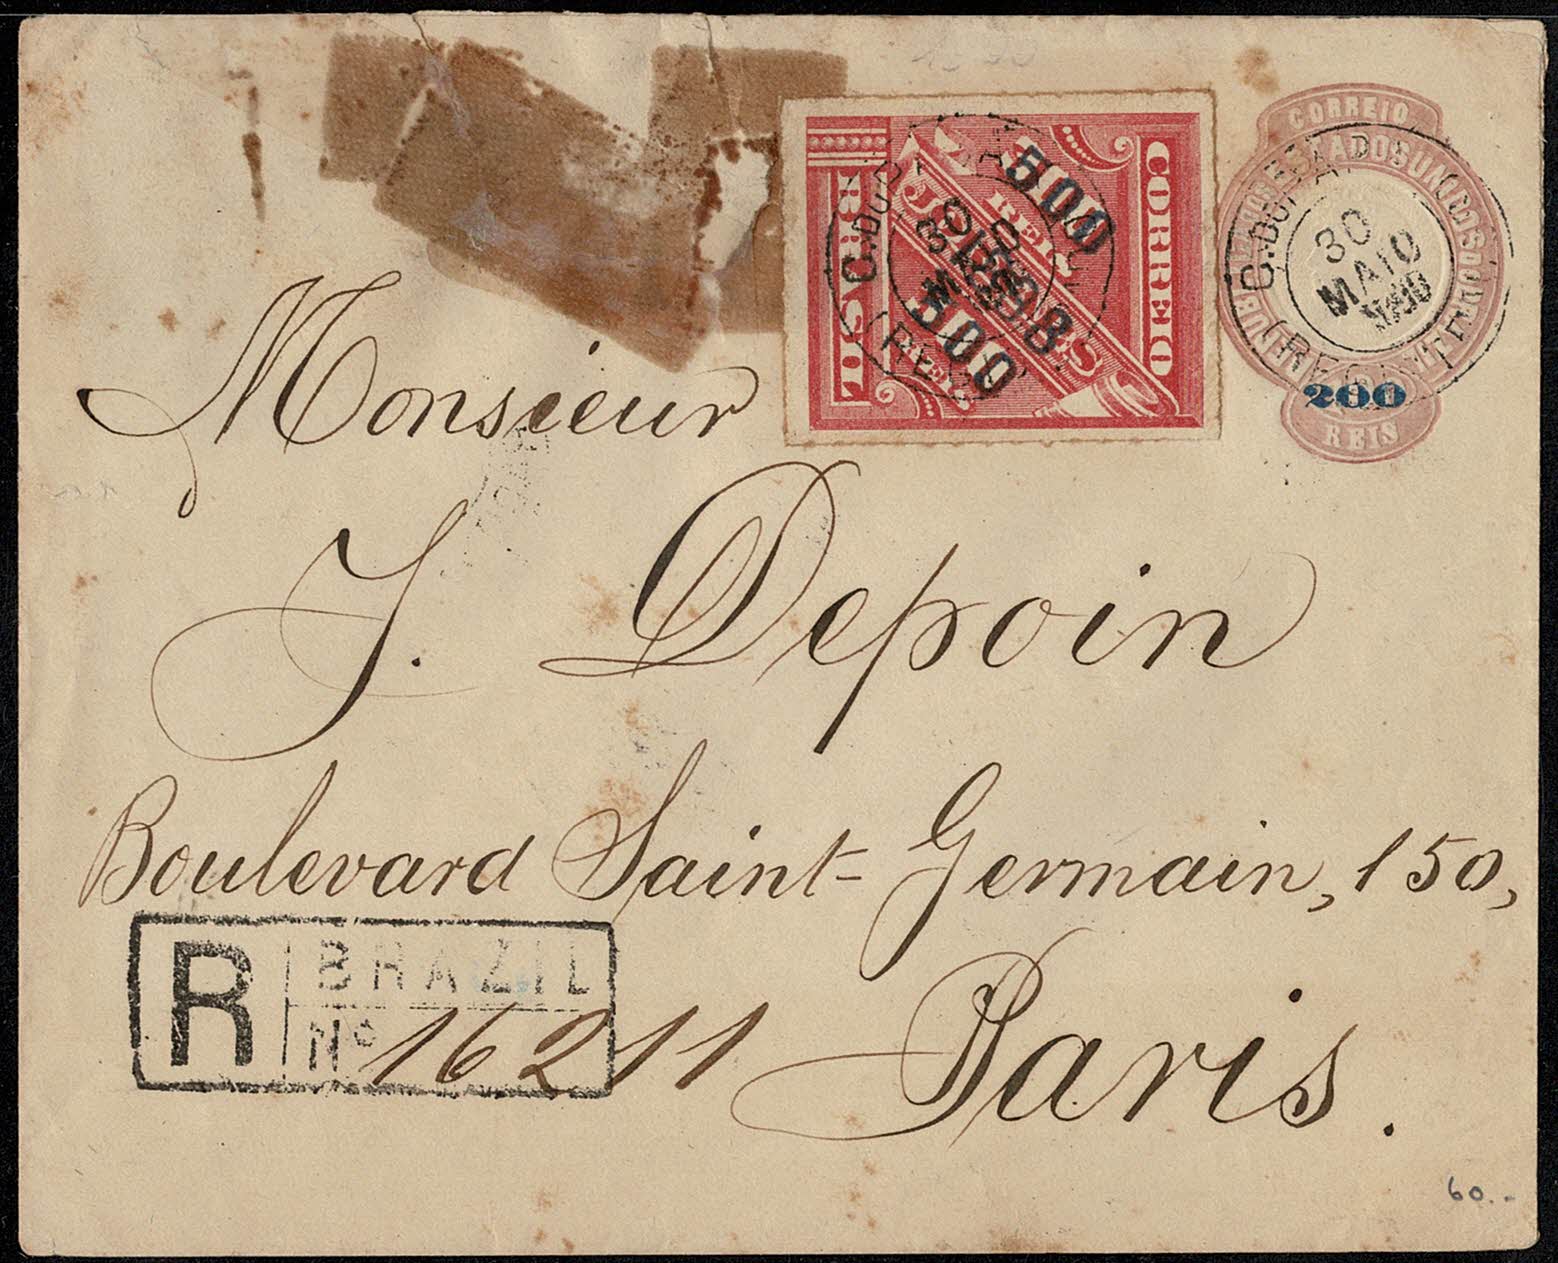 CORREIO
ESTADOS UNIDOS DO BRAZIL
200
REIS
30
MAIO
CORREIO
BRASIL
JORNAES
REIS
500
1898
500
30
MAIO
Monsieur
J. Depoin
Boulevard Saint-Germain, 150,
Paris.
R BRAZIL
No 16211
60.-